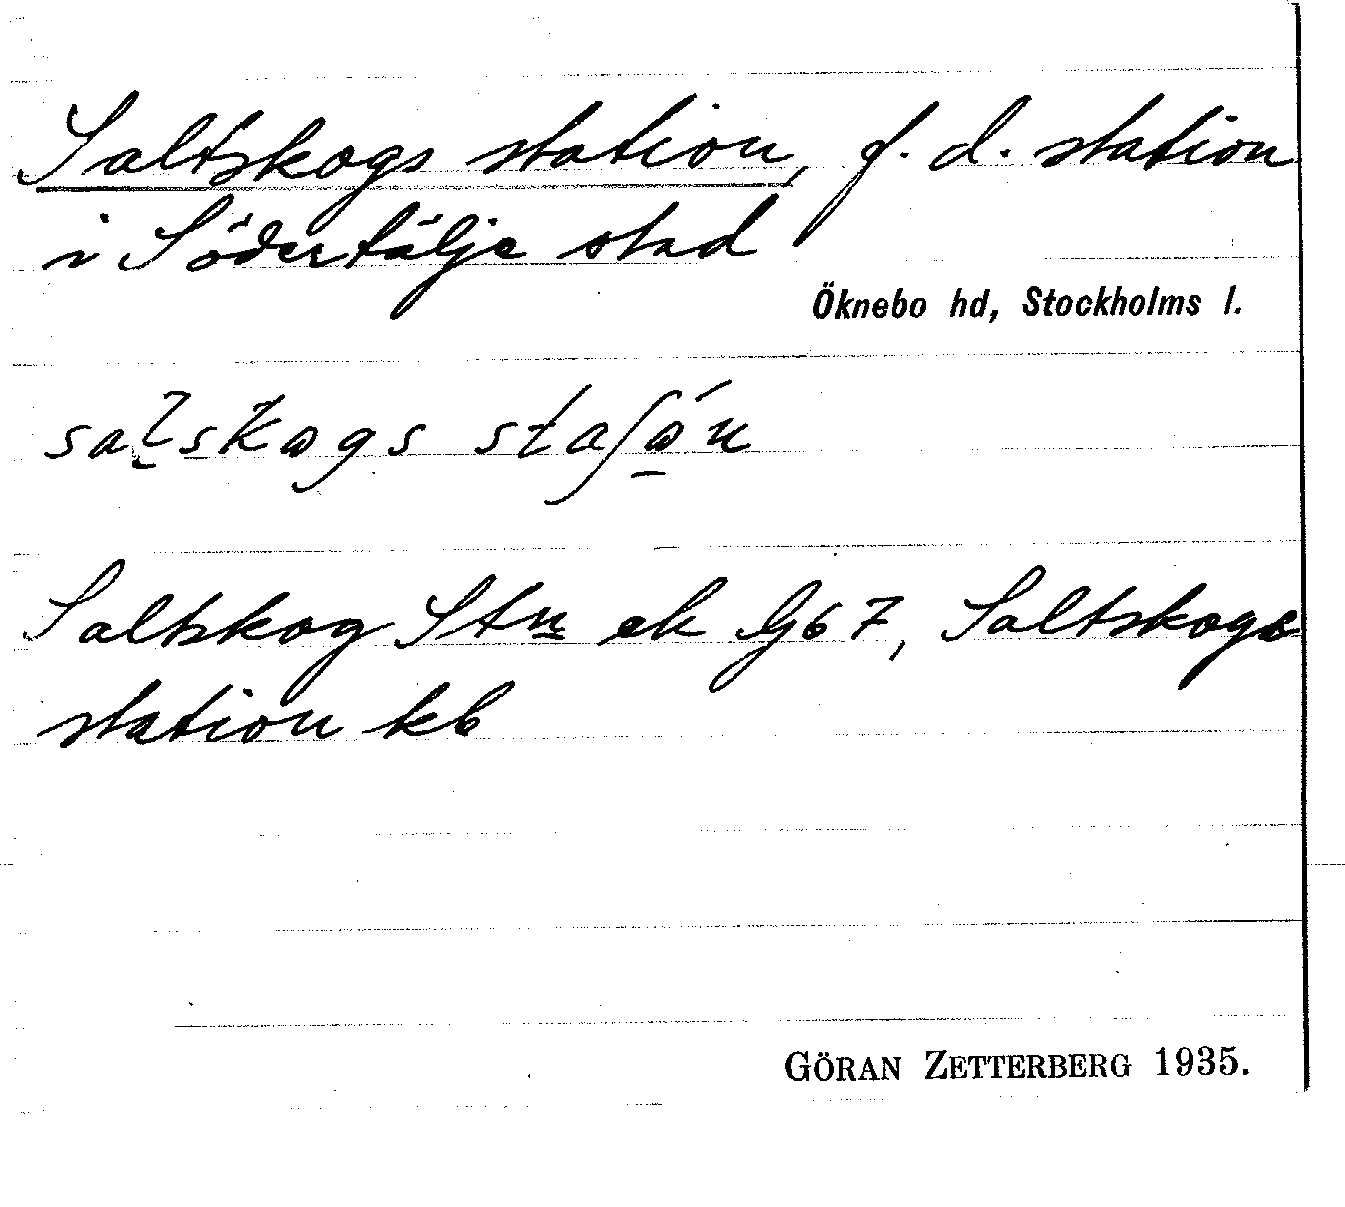 Saltskogs station, f. d. station
i Södertälje stad
Öknebo hd, Stockholms l.
Saltskog Stn ek Gb 7, Saltskogs
station kb
GÖRAN ZETTERBERG 1935.